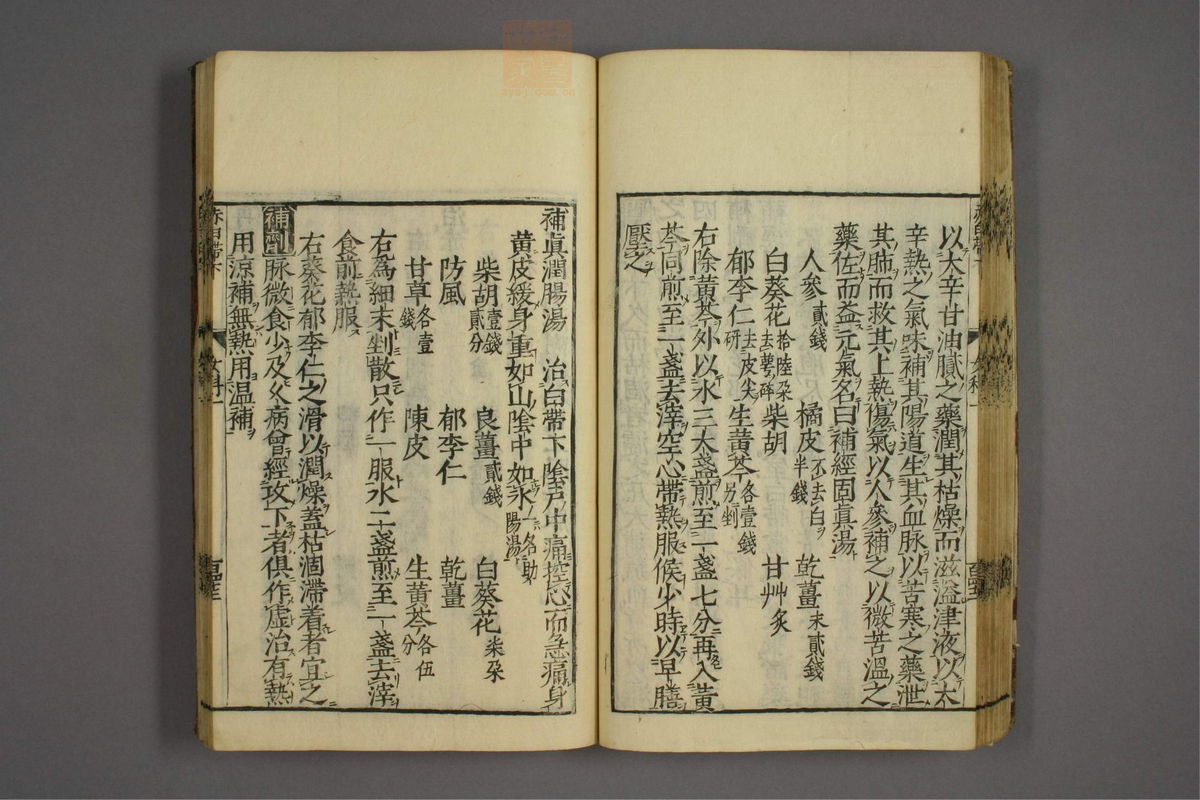 以大辛甘油膩之藥潤其枯燥而滋溢津液以大
辛熱之氣味補其陽道生其血脉以苦寒之藥泄
其肺而救其上熱傷氣以人參補之以微苦溫之
藥佐而益元氣名曰補經固眞湯
人參貳錢 橘皮不去白半錢 乾薑末貳錢
白葵花拾陸朶去萼碎 柴胡 甘艸炙
郁李仁去皮尖研 生黄芩各壹錢另剉
右除黄芩外以水三大盞煎至一盞七分再入黄
芩同煎至一盞去滓空心帶熱服候少時以早膳
壓之
補眞潤腸湯 治白帶下陰戸中痛控心而急痛身
黄皮緩身重如山陰中如氷一名助陽湯
柴胡壹錢貳分 良薑貳錢 白葵花柒朶
防風 郁李仁 乾薑
甘草各壹錢 陳皮 生黄芩各伍分
右爲細末剉散只作一服水二盞煎至一盞去滓
食前熱服
右葵花郁李仁之滑以潤燥蓋枯涸滯着者宜之
補劑脉微食少及久病曾經攻下者俱作虚治有熱
用涼補無熱用温補
女科一